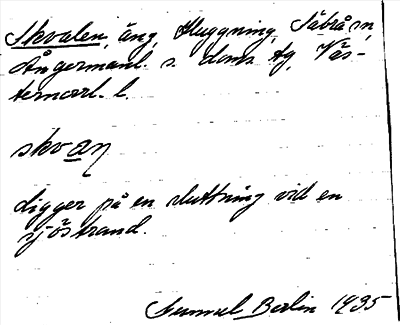 Skvalen, äng, Huggning, Säbrå sn,
Ångermanl. s. doms. tg, Väs-
ternorrl. l.
skvaɳ
Ligger på en sluttning vid en
sjöstrand.
Gunnel Berlin 1935